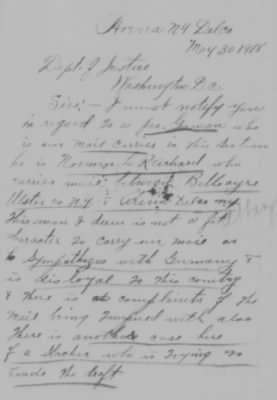 Arena N.Y. Delco.
May 30 1918
Dept. of Justice
Washington D.C.
Sirs:- I must notify you
in regard to a pro. German who
is our mail carrier in this section
he is Reinhard who
carries mail between Belleayre
Ulster co N.Y. & Arena Delco N.Y.
This man I deem is not a fit
character to carry our mail as
he sympathizes with Germany &
is disloyal to this country
& there is complaints of the
mail being tampered with also
There is another case here
of a slacker who is trying to
evade the draft